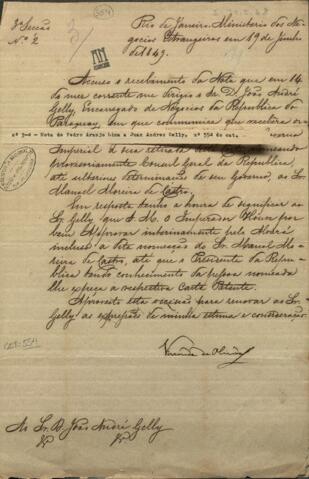 3ª Secção
Nº 2
Rio de Janeiro. Ministerio dos Ne-
gocios Estrangeiros em 19 de Junho
de 1849.
Accuso o recebimento da Nota que em 14
do mez corrente me dirigio o Sr. D. João André
Gelly, Encarregado de Negocios da Republica do
Paraguay, em que communica que
nº 3-4 - Nota de Pedro Araujo Lima a Juan Andres Gelly. nº 554 do cat.
Imperial e sua retirada
provisoriamente Consul Geral da Republica,
até ulterior determinação de seu Governo, ao Sr.
Manoel Moreira de Castro.
Em resposta tenho a honra de significar ao
Sr. Gelly que S. M. o Imperador Houve por
bem Approvar interinamente pelo
incluso a dita nomeação do Sr. Manoel Mo-
reira de Castro, até que o Presidente da Repu-
blica tendo conhecimento da pessoa nomeada
lhe expeça a respectiva Carta Patente.
Aproveito esta occasião para renovar ao Sr.
Gelly as expressões de minha estima e consideração
Visconde de Olinda
CAT. 554
Ao Sr. D. João André Gelly